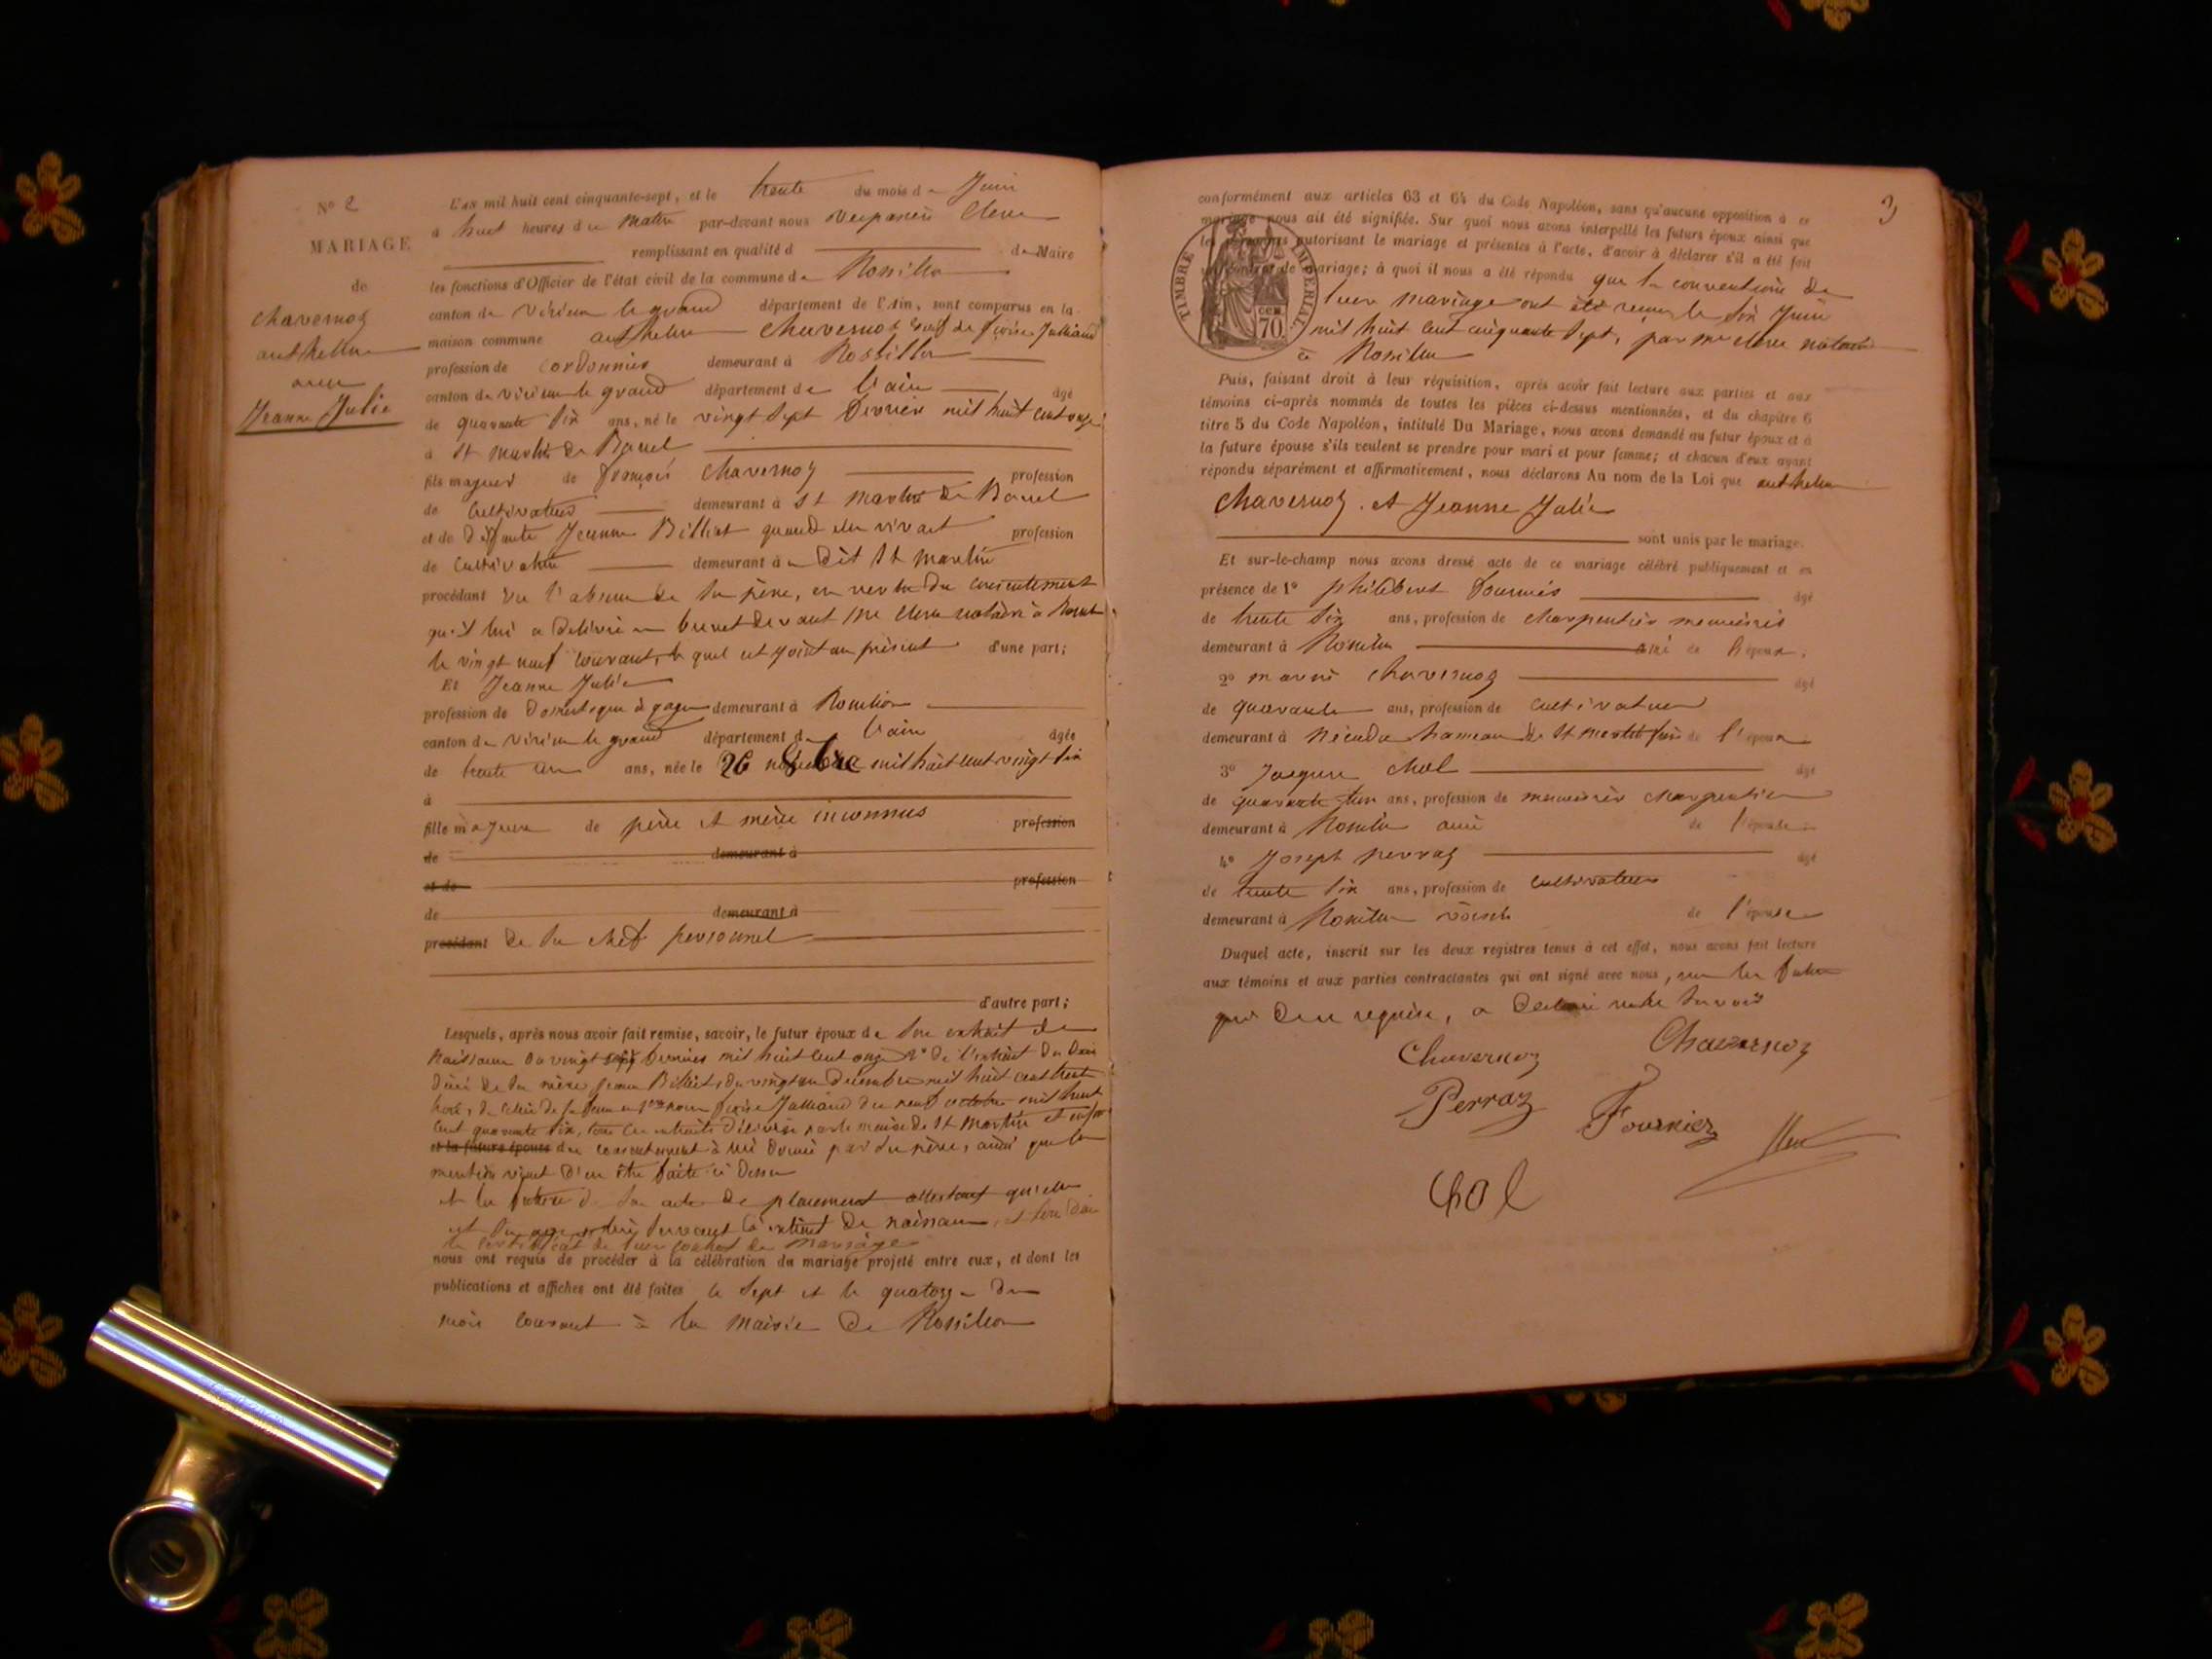 No 2
MARIAGE
de
Chavernoz
anthelme
avec
Jeanne Julie
L'an mil huit cent cinquante-sept, et le trente du mois de Juin
à huit heures du matin par-devant nous Vespasien Clerc
remplissant en qualité d de Maire
les fonctions d'Officier de l'état civil de la commune de Rossillon
canton de virieu le grand département de l'Ain, sont comparus en la
maison commune anthelme Chavernoz veuf de Julliand
profession de Cordonnier demeurant à Rossillon
canton de virieu le grand département de l'ain âgé
de quarante six ans, né le vingt sept mil huit cent onze
à St martin de Bavel
fils majeur de françois Chavernoz profession
de Cultivateur demeurant à St martin de Bavel
et de défunte Jeanne Billiet quand elle vivait profession
de Cultivatrice demeurant à dit St martin
procédant vu l'absence de son père, en vertu du consentement
qu'il lui a délivré en brevet devant me Clerc notaire à
le vingt neuf courant, lequel est joint au présent d'une part;
Et Jeanne Julie
profession de Domestique à gages demeurant à Rossillon
canton de virieu le grand département de l'ain âgée
de trente ans ans, née le 26 8bre mil huit cent vingt six
à
fille majeure de père et mère inconnus profession
de demeurant à
et de profession
de demeurant à
procédant de son chef personnel
d'autre part;
Lesquels, après nous avoir fait remise, savoir, le futur époux de son extrait de
naissance du vingt sept mil huit cent onze 2° de l'extrait du
décès de sa mère Jeanne Billiet, du vingt un décembre mil huit cent trente
trois, de celui de sa femme Julliand du neuf octobre mil huit
cent quarante six, tous ces extraits délivrés par le maire de St martin et enfin
et la future épouse du consentement à lui donné par son père, ainsi que la
mention vient d'en être faite ci dessus
et la future de son acte de placement attestant qu'elle
servant d'extrait de naissance
le certificat de leur contrat de mariage
nous ont requis de procéder à la célébration du mariage projeté entre eux, et dont les
publications et affiches ont été faites le sept et le quatorze du
mois courant à la mairie de Rossillon
3
conformément aux articles 63 et 64 du Code Napoléon, sans qu'aucune opposition à ce
mariage nous ait été signifiée. Sur quoi nous avons interpellé les futurs époux ainsi que
les personnes autorisant le mariage et présentes à l'acte, d'avoir à déclarer s'il a été fait
un contrat de mariage; à quoi il nous a été répondu que les conventions de
leur mariage ont été reçues le six Juin
mil huit cent cinquante sept, par me clerc notaire
à Rossillon
TIMBRE IMPÉRIAL
70 CEN.
Puis, faisant droit à leur réquisition, après avoir fait lecture aux parties et aux
témoins ci-après nommés de toutes les pièces ci-dessus mentionnées, et du chapitre 6
titre 5 du Code Napoléon, intitulé Du Mariage, nous avons demandé au futur époux et à
la future épouse s'ils veulent se prendre pour mari et pour femme; et chacun d'eux ayant
répondu séparément et affirmativement, nous déclarons Au nom de la Loi que anthelme
Chavernoz et Jeanne Julie
sont unis par le mariage.
Et sur-le-champ nous avons dressé acte de ce mariage célébré publiquement et en
présence de 1° philibert Fournier âgé
de trente six ans, profession de charpentier menuisier
demeurant à Rossillon ami de l'époux.
2° Chavernoz âgé
de quarante ans, profession de cultivateur
demeurant à hameau de St martin frère de l'époux
3° Jacques Chol âgé
de quarante ans, profession de menuisier charpentier
demeurant à Rossillon ami de l'épouse
4° Joseph perraz âgé
de trente six ans, profession de cultivateur
demeurant à Rossillon voisin de l'épouse
Duquel acte, inscrit sur les deux registres tenus à cet effet, nous avons fait lecture
aux témoins et aux parties contractantes qui ont signé avec nous, non la future
qui de ce requise, a déclaré ne le savoir
Chavernoz Chavernoz
Perraz Fournier Clerc
Chol